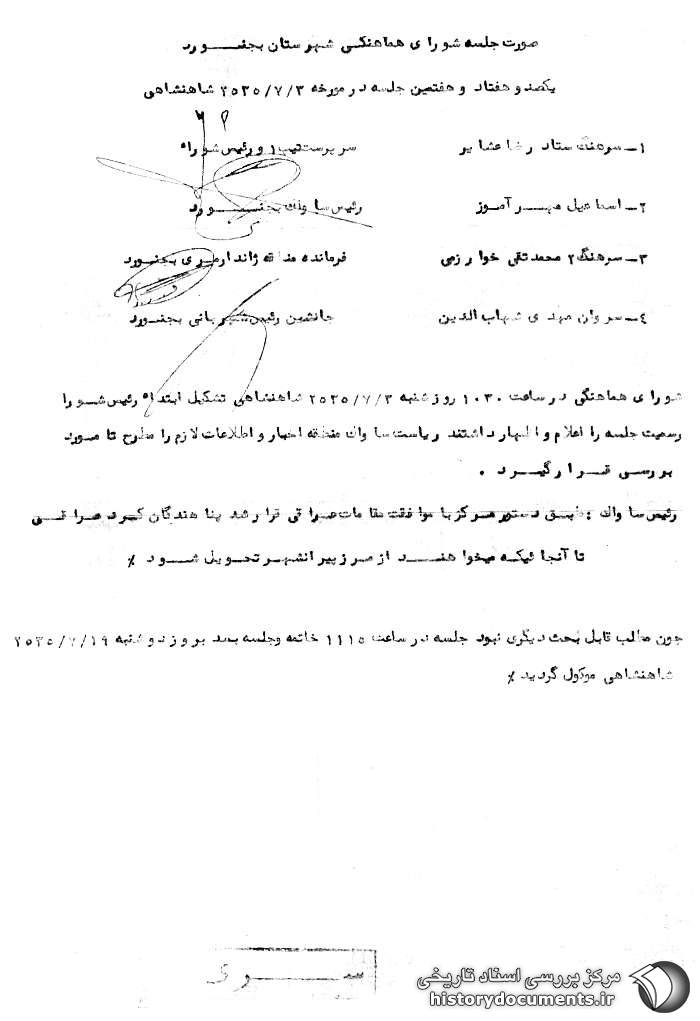 صورت جلسه شورای هماهنگی شهرستان بجنورد
یکصد و هفتاد و هفتمین جلسه در مورخه ۲۵۳۵/۷/۳ شاهنشاهی
۱ـ سرهنگ ستاد رضا عشایر سرپرست تیپ ۱ و رئیس شوراء
۲ـ اسماعیل مهرآموز رئیس ساواک بجنورد
۳ـ سرهنگ ۲ محمدتقی خوارزمی فرمانده منطقه ژاندارمری بجنورد
٤ـ سروان مهدی شهاب الدین جانشین رئیس شهربانی بجنورد
شورای هماهنگی در ساعت ۱۰۳۰ روز شنبه ۲۵۳۵/۷/۳ شاهنشاهی تشکیل ابتداء رئیس شورا
رسمیت جلسه را اعلام و اظهار داشتند ریاست ساواک منطقه اخبار و اطلاعات لازم را مطرح تا مورد
بررسی قرار گیرد .
رئیس ساواک : طبق دستور مرکز با موافقت مقامات عراقی قرار شد پناهندگان کرد عراقی
تا آنجائیکه میخواهند از مرز پیرانشهر تحویل شود ٪
چون مطالب قابل بحث دیگری نبود جلسه در ساعت ۱۱۱۵ خاتمه وجلسه بعد بروز دوشنبه ۲۵۳۵/۷/۱۹
شاهنشاهی موکول گردید ٪
سری
مرکز بررسی اسناد تاریخی
historydocuments.ir